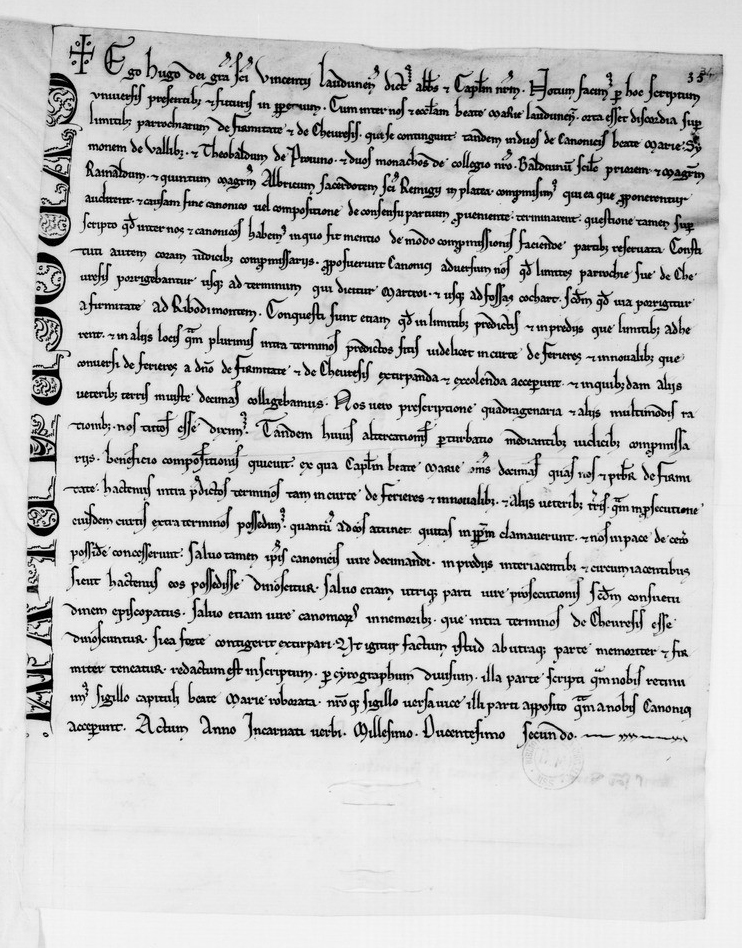 35
Ego hugo dei gr̃a sc̃i Vincentij laudunen̄ dict᷒ abb̃s & Cap̃lm nr̃m. Notum facim᷒ ꝑ hoc scriptum
vniuersis presentib; & futuris in ꝑpetuum. Cum inter nos & eccl̃am beate marie laudunen̄. orta esset discordia suꝑ
limitib; parrochiarum de firmitate & de Cheuresis. qui se contingunt. tandem in duos de Canonicis beate marie. Sy
monem de Vallib;. & Theobaldum de & duos monachos de collegio nr̃o. Balduinũ scilic& priorem. & magr̃m
Rainaldum. & quintum magr̃m Albricum sacerdotem sc̃i Remigij in platea. compromisim᷒ qui ea que ꝓponerentur
audirent. & causam fine canonico uel compositione de consensu partium ꝓueniente. terminarent. questione tamen suꝑ
scripto qd̃ inter nos & canonicos habem᷒ in quo fit mentio de modo compromissionis faciende partib; reseruata. Consti
tuti autem coram iudicib; compromissarijs. ꝓposuerunt Canonici aduersum nos qd̃ limites parrochie sue de Che
uresis porrigebantur usq; ad terminum qui dicitur Martroi. & usq; ad fossas cochart. scd̃m qd̃ uia porrigitur
a firmitate ad Ribodimontem. Conquesti sunt etiam qd̃ in limitib; predictis & in predijs que limitib; adhe
rent. & in alijs locis qm̃ plurimis intra terminos predictos sitis uidelicet in curte de ferieres & in noualib; que
conuersi de ferieres a dño de firmitate & de Cheuresis extirpanda & excolenda acceperunt. & in quib;dam alijs
ueterib; terris iniuste decimas colligebamus. Nos uero prescriptione quadragenaria & alijs multimodis ra
tionib;. nos tutos esse dicim᷒. Tandem huius altercationis ꝑturbatio mediantib; iudicib; compromissa
rijs. beneficio compositionis quieuit. ex qua Cap̃lm beate marie om̃s decimas quas nos & pr̃br̃ de firmi
tate. hactenus intra p̃dictos terminos tam in curte de ferieres & in noualib;. & alijs ueterib; tr̃ris qm̃ in prosecutione
cuiusdem curtis extra terminos possedim᷒. quantũ ad eos attinet. quitas in ꝑpm̃ clamauerunt. & nos in pace de cet̃o
possidere concesserunt. saluo tamen ip̃is canonicis iure decimandi. in predijs interiacentib; & circumiacentibus
sicut hactenus eos possedisse dinoscitur. saluo etiam utriq; parti iure prosecutionis scd̃m consuetu
dinem episcopatus. saluo etiam iure canonicor᷒ in nemorib;. que intra terminos de Cheuresis esse
dinoscuntur. si ea forte contigerit extirpari. Vt igitur factum istud ab utraq; parte memoriter & fir
miter teneatur. redactum est in scriptum. ꝑ cyrographum diuisum. illa parte scripti qm̃ nobis retinu
im᷒ sigillo capituli beate marie roborata. nr̃oq; sigillo uersa uice illi parti apposito qm̃ a nobis Canonici
acceperunt. Actum Anno Incarnati uerbi. Millesimo. Ducentesimo secundo.